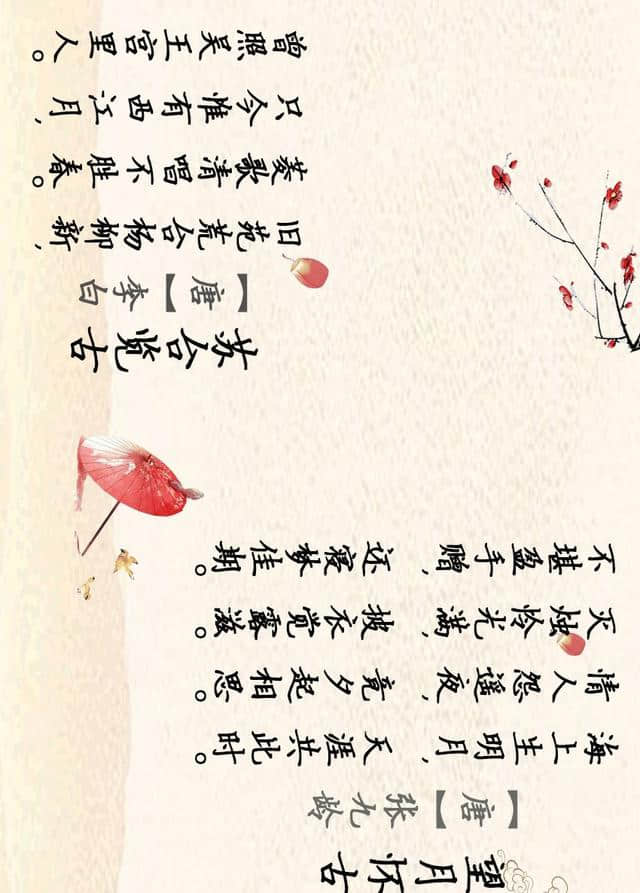 望月怀古
【唐】张九龄
海上生明月，天涯共此时。
情人怨遥夜，竟夕起相思。
灭烛怜光满，披衣觉露滋。
不堪盈手赠，还寝梦佳期。
苏台览古
【唐】李白
旧苑荒台杨柳新，
菱歌清唱不胜春。
只今惟有西江月，
曾照吴王宫里人。